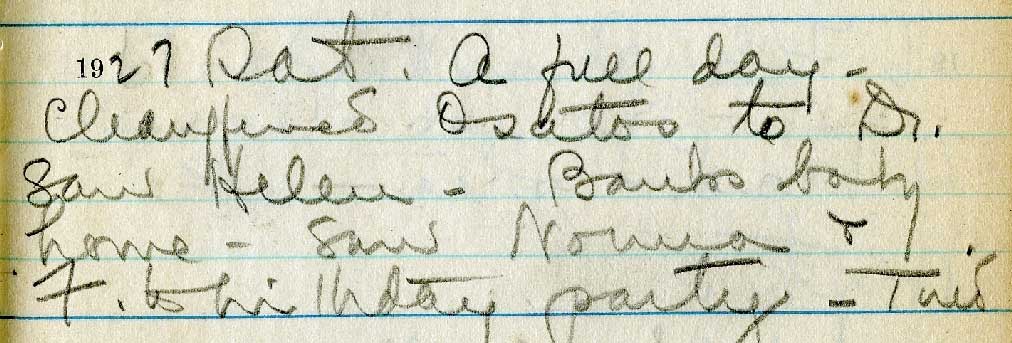 1927 Sat. A full day -
Chauffered Osatos to Dr.
Saw Helen - Banks baby
home - Saw Norma & J.
F. to birthday party - Tired